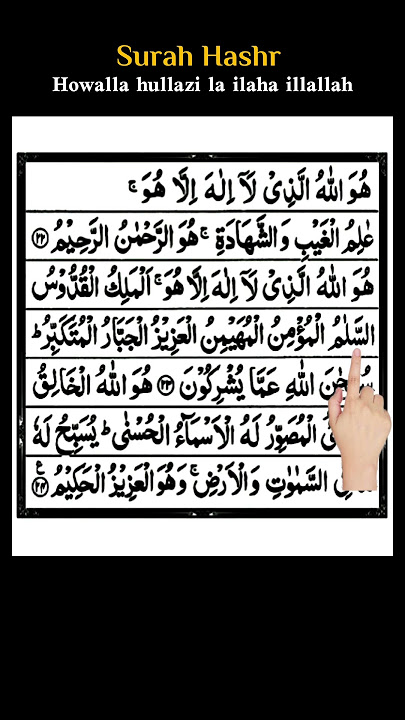 Surah Hashr
Howalla hullazi la ilaha illallah
هُوَ اللّٰهُ الَّذِیْ لَاۤ اِلٰهَ اِلَّا هُوَ ۚ
عٰلِمُ الْغَیْبِ وَ الشَّهَادَةِ ۚ هُوَ الرَّحْمٰنُ الرَّحِیْمُ ﴿۲۲﴾
هُوَ اللّٰهُ الَّذِیْ لَاۤ اِلٰهَ اِلَّا هُوَ ۚ اَلْمَلِكُ الْقُدُّوْسُ
السَّلٰمُ الْمُؤْمِنُ الْمُهَیْمِنُ الْعَزِیْزُ الْجَبَّارُ الْمُتَكَبِّرُ ؕ
اللّٰهِ عَمَّا یُشْرِكُوْنَ ﴿۲۳﴾ هُوَ اللّٰهُ الْخَالِقُ
الْمُصَوِّرُ لَهُ الْاَسْمَآءُ الْحُسْنٰی ؕ یُسَبِّحُ لَهٗ
السَّمٰوٰتِ وَ الْاَرْضِ ۚ وَ هُوَ الْعَزِیْزُ الْحَكِیْمُ ﴿۲۴﴾ ع